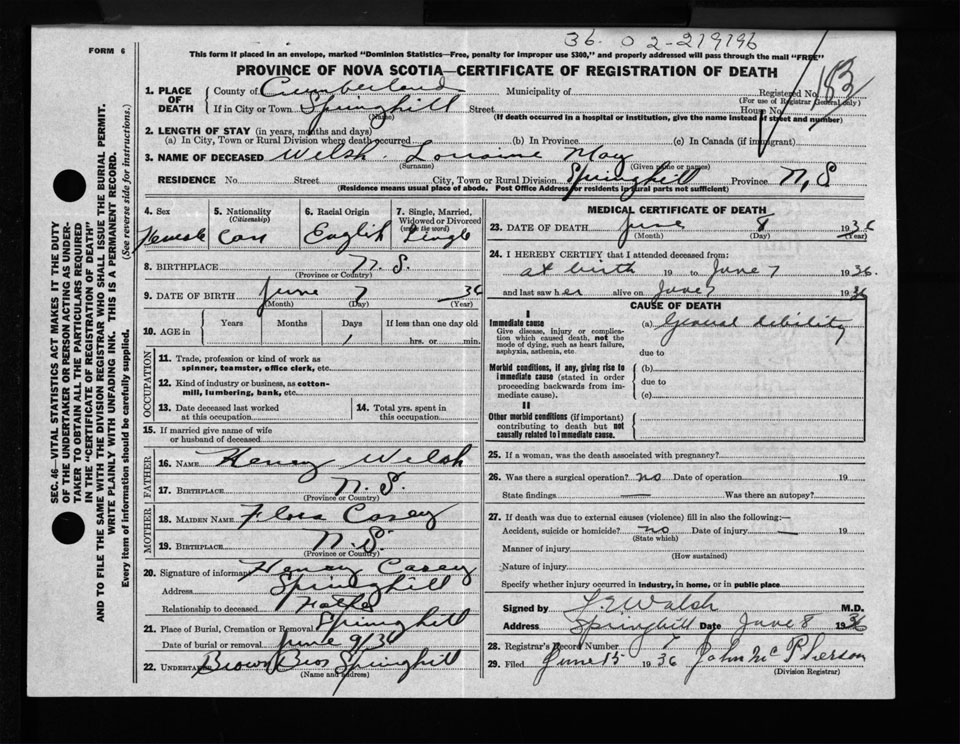 36. 02-219196
FORM 6
This form if placed in an envelope, marked "Dominion Statistics—Free, penalty for improper use $300," and properly addressed will pass through the mail "FREE"
PROVINCE OF NOVA SCOTIA—CERTIFICATE OF REGISTRATION OF DEATH
1. PLACE OF DEATH
County of Cumberland Municipality of Registered No.
(For use of Registrar General only)
If in City or Town Springhill Street House No.
(Name) (If death occurred in a hospital or institution, give the name instead of street and number)
2. LENGTH OF STAY (in years, months and days)
(a) In City, Town or Rural Division where death occurred (b) In Province (c) In Canada (if immigrant)
3. NAME OF DECEASED Welsh. Lorraine May
(Surname) (Given name or names)
RESIDENCE No Street City, Town or Rural Division Springhill Province N.S
(Residence means usual place of abode. Post Office Address for residents in rural parts not sufficient)
4. Sex 5. Nationality (Citizenship) 6. Racial Origin 7. Single, Married, Widowed or Divorced (write the word)
Female Can English Single
8. BIRTHPLACE N.S.
(Province or Country)
9. DATE OF BIRTH June 7 36
(Month) (Day) (Year)
10. AGE in Years Months Days If less than one day old
1 hrs. or min.
OCCUPATION
11. Trade, profession or kind of work as spinner, teamster, office clerk, etc.
12. Kind of industry or business, as cotton-mill, lumbering, bank, etc.
13. Date deceased last worked at this occupation
14. Total yrs. spent in this occupation
15. If married give name of wife or husband of deceased
FATHER
16. NAME Henry Welsh
17. BIRTHPLACE N.S.
(Province or Country)
MOTHER
18. MAIDEN NAME Flora Casey
19. BIRTHPLACE N.S.
(Province or Country)
20. Signature of informant Henry Casey
Address Springhill
Relationship to deceased Father
21. Place of Burial, Cremation or Removal Springhill
Date of burial or removal June 9/36
22. UNDERTAKER Brown Bros Springhill
(Name and address)
MEDICAL CERTIFICATE OF DEATH
23. DATE OF DEATH June 8 1936
(Month) (Day) (Year)
24. I HEREBY CERTIFY that I attended deceased from:
at birth 19 to June 7 1936.
and last saw her alive on June 7 1936
CAUSE OF DEATH
I
Immediate cause
Give disease, injury or complication which caused death, not the mode of dying, such as heart failure, asphyxia, asthenia, etc.
(a) General debility
due to
Morbid conditions, if any, giving rise to immediate cause (stated in order proceeding backwards from immediate cause).
(b)
due to
(c)
II
Other morbid conditions (if important) contributing to death but not causally related to immediate cause.
25. If a woman, was the death associated with pregnancy?
26. Was there a surgical operation? no Date of operation 19
State findings — Was there an autopsy?
27. If death was due to external causes (violence) fill in also the following:—
Accident, suicide or homicide? no Date of injury — 19
(State which)
Manner of injury
(How sustained)
Nature of injury
Specify whether injury occurred in industry, in home, or in public place
Signed by Walsh M.D.
Address Springhill Date June 8 1936
28. Registrar's Record Number 7
29. Filed June 15 1936 John McPherson
(Division Registrar)
SEC. 46—VITAL STATISTICS ACT MAKES IT THE DUTY
OF THE UNDERTAKER OR PERSON ACTING AS UNDER-
TAKER TO OBTAIN ALL THE PARTICULARS REQUIRED
IN THE "CERTIFICATE OF REGISTRATION OF DEATH"
AND TO FILE THE SAME WITH THE DIVISION REGISTRAR WHO SHALL ISSUE THE BURIAL PERMIT.
WRITE PLAINLY WITH UNFADING INK. THIS IS A PERMANENT RECORD.
Every item of information should be carefully supplied. (See reverse side for instructions.)